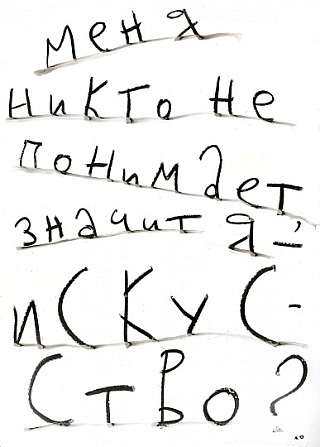 меня
никто не
понимает,
значит я –
искус-
ство?